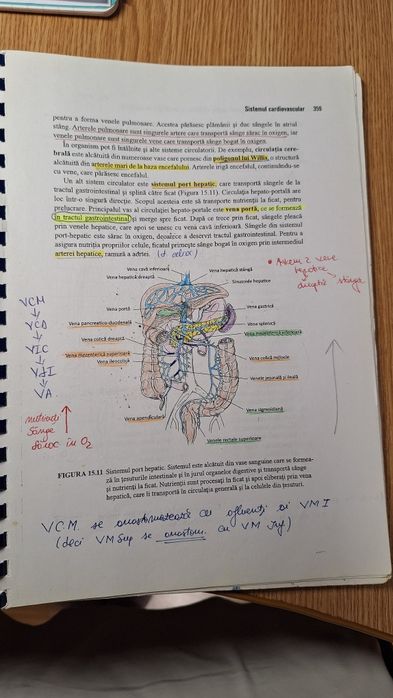 Sistemul cardiovascular 359
pentru a forma venele pulmonare. Acestea părăsesc plămânii și duc sângele în atriul
stâng. Arterele pulmonare sunt singurele artere care transportă sânge sărac în oxigen, iar
venele pulmonare sunt singurele vene care transportă sânge bogat în oxigen.
În organism pot fi întâlnite și alte sisteme circulatorii. De exemplu, circulația cere-
brală este alcătuită din numeroase vase care pornesc din poligonul lui Willis, o structură
alcătuită din arterele mari de la baza encefalului. Arterele irigă encefalul, continuându-se
cu vene, care părăsesc encefalul.
Un alt sistem circulator este sistemul port hepatic, care transportă sângele de la
tractul gastrointestinal și splină către ficat (Figura 15.11). Circulația hepato-portală are
loc într-o singură direcție. Scopul acesteia este să transporte nutrienții la ficat, pentru
prelucrare. Principalul vas al circulației hepato-portale este vena portă, ce se formează
în tractul gastrointestinal și merge spre ficat. După ce trece prin ficat, sângele pleacă
prin venele hepatice, care apoi se unesc cu vena cavă inferioară. Sângele din sistemul
port-hepatic este sărac în oxigen, deoarece a deservit tractul gastrointestinal. Pentru a
asigura nutriția propriilor celule, ficatul primește sânge bogat în oxigen prin intermediul
arterei hepatice, ramură a aortei.
Vena cavă inferioară
Vena hepatică dreaptă
Vena hepatică stângă
Sinusoide hepatice
Vena portă
Vena gastrică
Vena pancreatico-duodenală
Vena splenică
Vena mezenterică inferioară
Vena colică dreaptă
Vena mezenterică superioară
Vena colică mijlocie
Vena ileocolică
Venele jejunală și ileală
Vena apendiculară
Vena sigmoidiană
Venele rectale superioare
• Avem 2 vene
hepatice
dreaptă stânga
VCM
VCD
VIC
VA
nutrienți
sânge
sărac în O2
FIGURA 15.11 Sistemul port hepatic. Sistemul este alcătuit din vase sanguine care se formea-
ză în țesuturile intestinale și în jurul organelor digestive și transportă sânge
și nutrienți la ficat. Nutrienții sunt procesați în ficat și apoi eliberați prin vena
hepatică, care îi transportă în circulația generală și la celulele din țesuturi.
VCM se anastomozează cu afluenți ai VMI
(deci VM Sup se anastom. cu VM Inf)